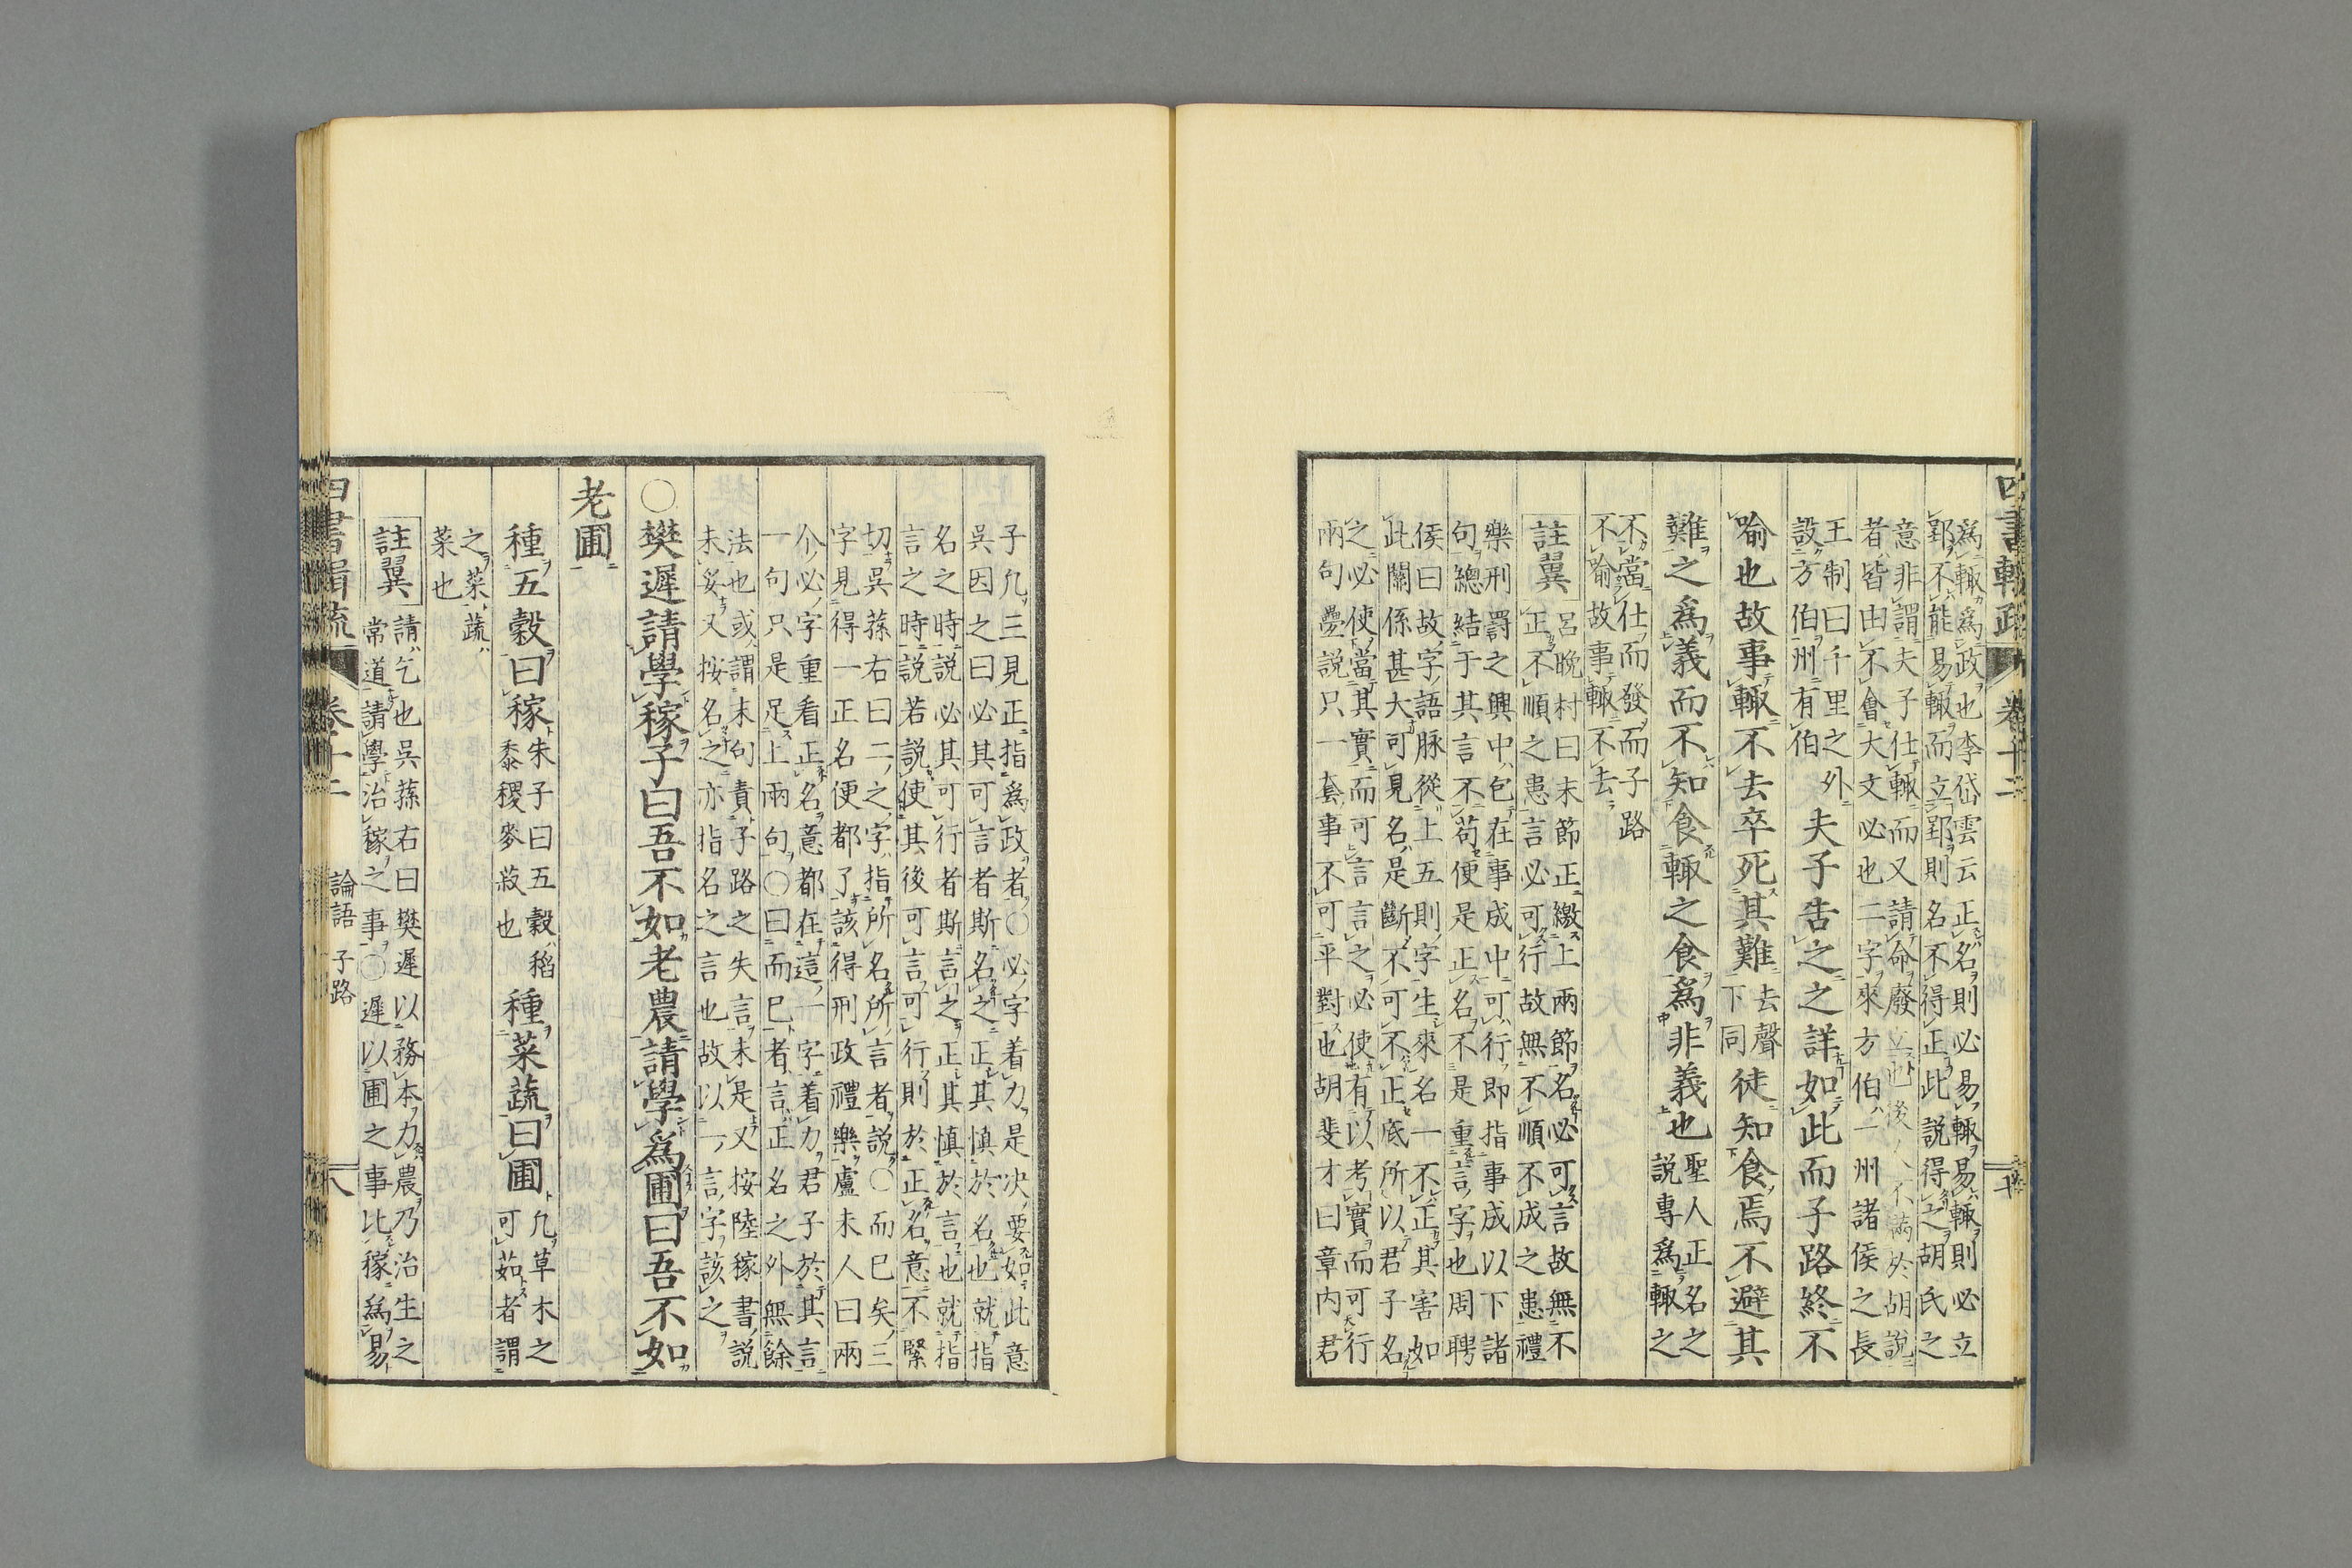 爲輒爲政也李岱雲云正名則必易輒易輒則必立
郢不能易輒而立郢則名不得正此説得之胡氏之
意非謂夫子仕輒而又請命廢立也後人不滿於胡説
者皆由不會大文必也二字來方伯一州諸侯之長
王制曰千里之外
設方伯州有伯
夫子告之之詳如此而子路終不
喻也故事輒不去卒死其難
去聲
下同
徒知食焉不避其
難之爲義而不知食輒之食爲非義也
聖人正名之
説專爲輒之
不當仕而發而子路
不喻故事輒不去
註翼
呂晩村曰末節正繳上兩節名必可言故無不
正不順之患言必可行故無不順不成之患禮
樂刑罰之興中包在事成中可行即指事成以下諸
句總結于其言不苟便是正名不是重言字也周聘
侯曰故字語脉從上五則字生來名一不正其害如
此關係甚大可見名是斷不可不正底所以君子名
之必使當其實而可言言之必使有以考實而可行
兩句疊説只一套事不可平對也胡斐才曰章内君
子凡三見正指爲政者○必字着力是决要如此意
吳因之曰必其可言者斯名之正其愼於名也就指
名之時説必其可行者斯言之正其愼於言也就指
言之時説若説使其後可言可行則於正名意不緊
切吳蓀右曰二之字指所名所言者説○而已矣三
字見得一正名便都了該得刑政禮樂盧未人曰兩
个必字重看正名意都在這一字着力君子於其言
一句只是足上兩句○曰而已者言正名之外無餘
法也或謂末句責子路之失言未是又按陸稼書説
未妥又按名之亦指名之言也故以一言字該之
○樊遲請學稼子曰吾不如老農請學爲圃曰吾不如
老圃
種五穀曰稼
朱子曰五穀稻
黍稷麥菽也
種菜蔬曰圃
凡草木之
可茹者謂
之菜蔬
菜也
註翼
請乞也吳蓀右曰樊遲以務本力農乃治生之
常道請學治稼之事○遲以圃之事比稼爲易
四書輯疏
卷十二
論語 子路
八